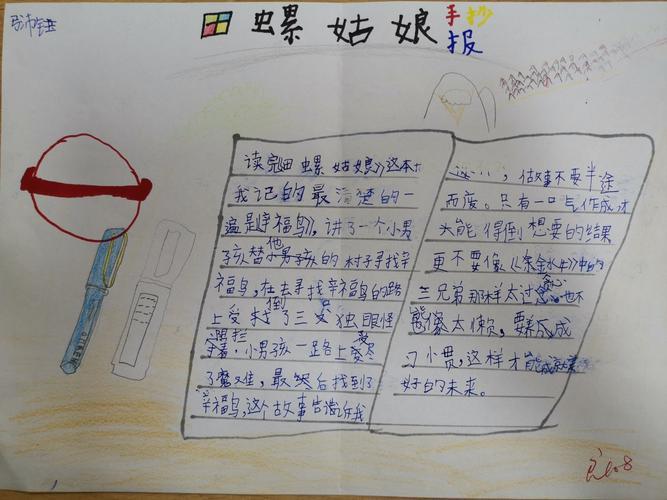 田螺姑娘手抄报
读完《田螺姑娘》这本书
我记的最清楚的一
遍是《幸福鸟》，讲了一个小男
孩替他小男孩的村子寻找幸
福鸟，在去寻找幸福鸟的路
上受到了三只独眼怪
阻拦，小男孩一路上受尽
了魔难，最然后找到了
幸福鸟，这个故事告诉我
，做事不要半途
而废。只有一口气作成才
能得到想要的结果
更不要像《余金水牛》中的
三兄弟那样太过贪心也不
能像太懒，要养成
习惯，这样才能成就
好的未来。